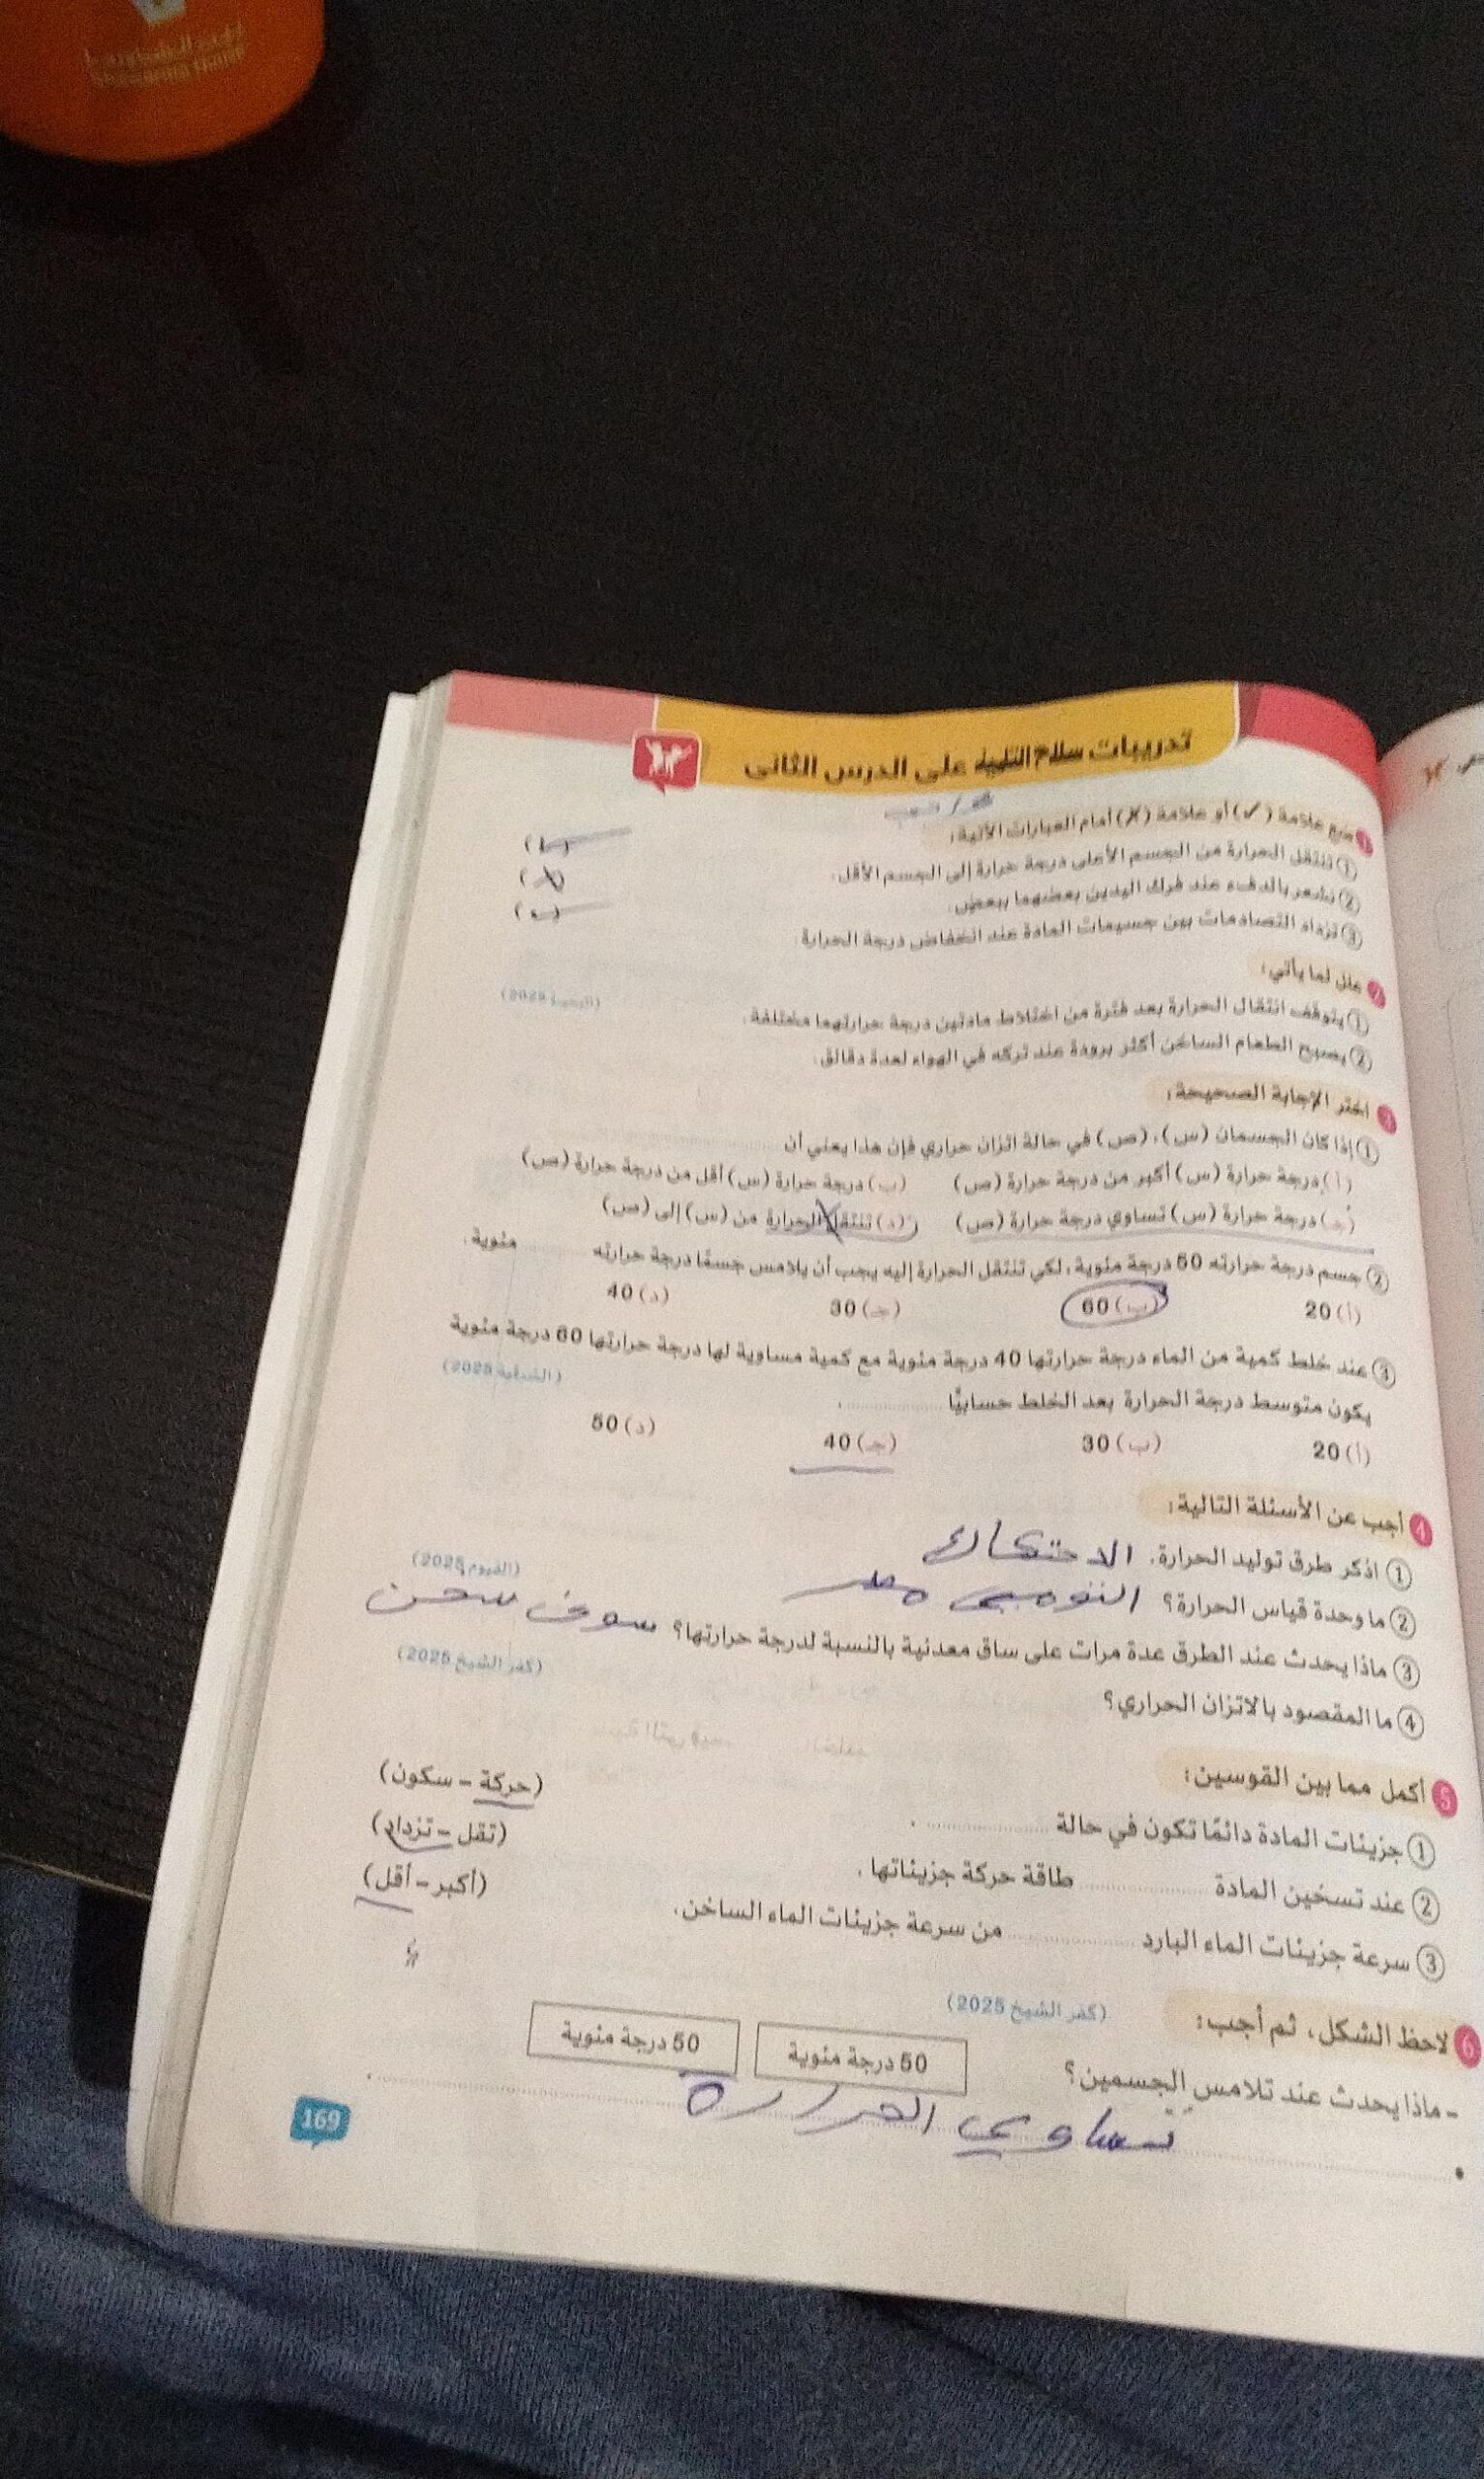 تدريبات سلاح التلميذ على الدرس الثاني
١٢
1 ضع علامة (✓) أو علامة (✗) أمام العبارات الآتية:
① تنتقل الحرارة من الجسم الأعلى درجة حرارة إلى الجسم الأقل.
② نشعر بالدفء عند فرك اليدين بعضهما ببعض. (✗)
③ تزداد التصادمات بين جسيمات المادة عند انخفاض درجة الحرارة.
2 علل لما يأتي:
① يتوقف انتقال الحرارة بعد فترة من اختلاط مادتين درجة حرارتهما مختلفة. 2025)
② يصبح الطعام الساخن أكثر برودة عند تركه في الهواء لعدة دقائق.
3 اختر الإجابة الصحيحة:
① إذا كان الجسمان (س)، (ص) في حالة اتزان حراري فإن هذا يعني أن
(أ) درجة حرارة (س) أكبر من درجة حرارة (ص) (ب) درجة حرارة (س) أقل من درجة حرارة (ص)
(جـ) درجة حرارة (س) تساوي درجة حرارة (ص) (د) تنتقل الحرارة من (س) إلى (ص)
② جسم درجة حرارته 50 درجة مئوية، لكي تنتقل الحرارة إليه يجب أن يلامس جسمًا درجة حرارته مئوية.
(أ) 20 (ب) 60 (جـ) 30 (د) 40
③ عند خلط كمية من الماء درجة حرارتها 40 درجة مئوية مع كمية مساوية لها درجة حرارتها 60 درجة مئوية
يكون متوسط درجة الحرارة بعد الخلط حسابيًّا . 2025)
(أ) 20 (ب) 30 (جـ) 40 (د) 50
4 أجب عن الأسئلة التالية:
① اذكر طرق توليد الحرارة. الاحتكاك (الفيوم 2025)
② ما وحدة قياس الحرارة؟
③ ماذا يحدث عند الطرق عدة مرات على ساق معدنية بالنسبة لدرجة حرارتها؟ سوف (كفر الشيخ 2025)
④ ما المقصود بالاتزان الحراري؟
5 أكمل مما بين القوسين:
① جزيئات المادة دائمًا تكون في حالة . (حركة - سكون)
② عند تسخين المادة طاقة حركة جزيئاتها. (تقل - تزداد)
③ سرعة جزيئات الماء البارد من سرعة جزيئات الماء الساخن. (أكبر - أقل)
6 لاحظ الشكل، ثم أجب: (كفر الشيخ 2025)
50 درجة مئوية 50 درجة مئوية
- ماذا يحدث عند تلامس الجسمين؟
تساوي الحرارة
169